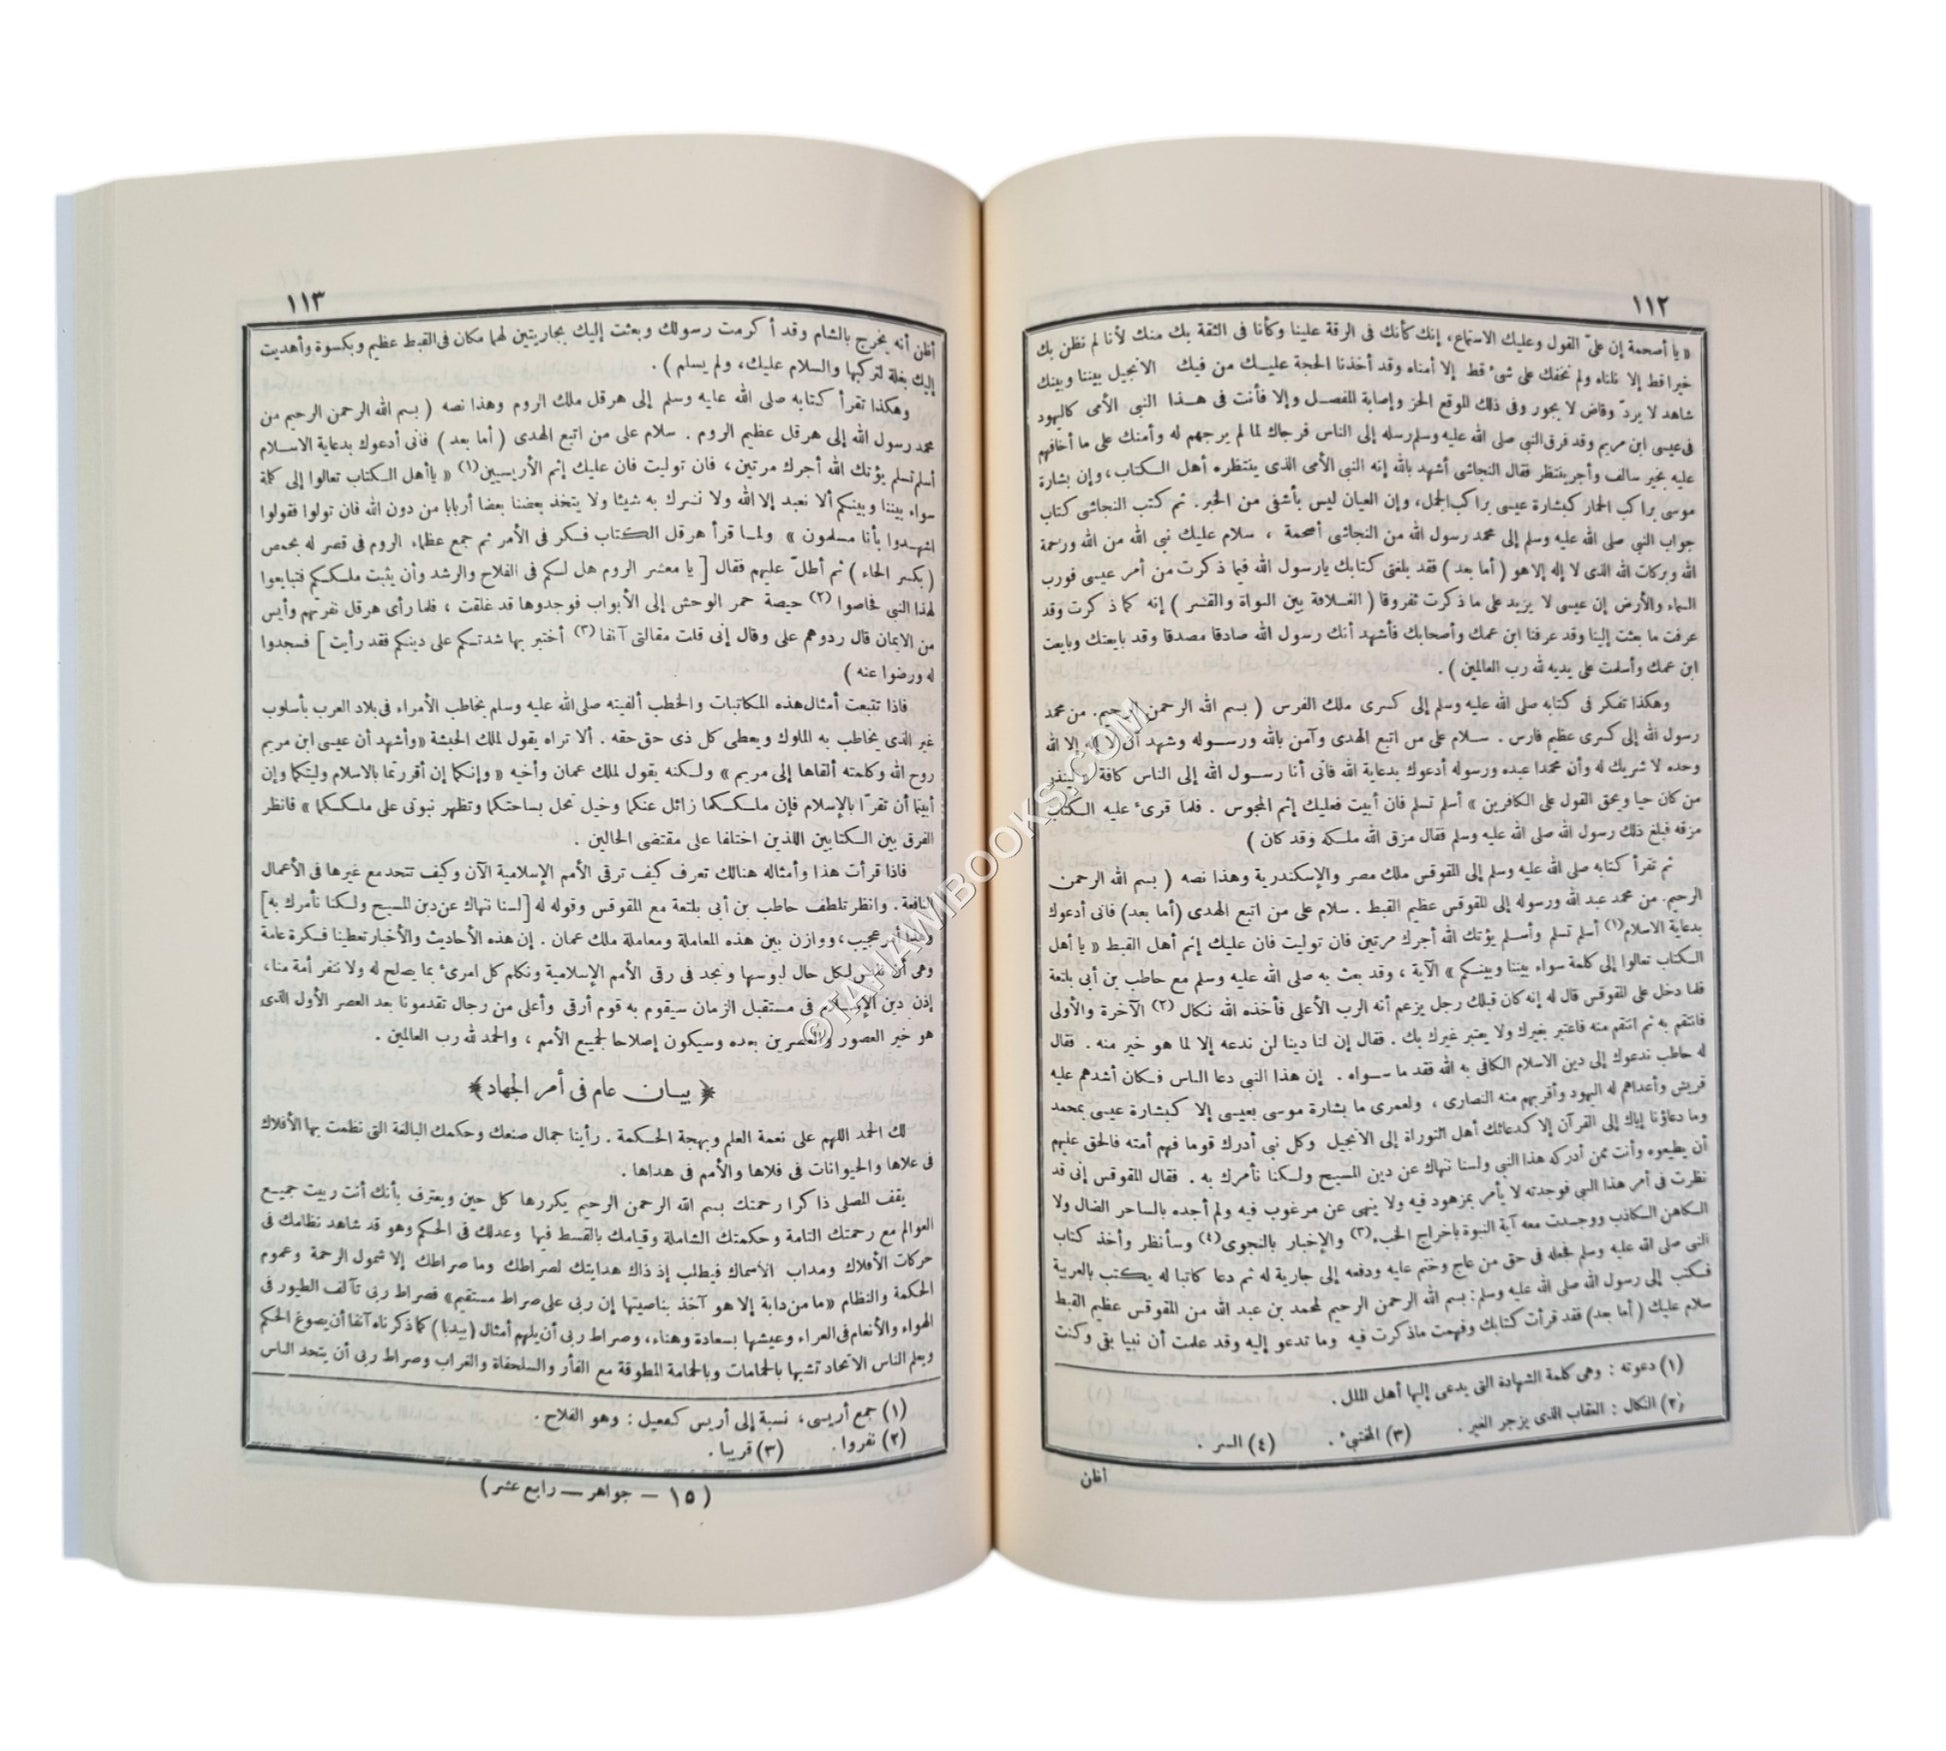 ١١٢
« يا أصحمة إن علىّ القول وعليك الاستماع، إنك كأنك فى الرقة علينا وكأنا فى الثقة بك منك لأنا لم نظن بك
خيرا قط إلا نلناه ولم نخفك على شىء قط إلا أمناه وقد أخذنا الحجة عليك من فيك الانجيل بيننا وبينك
شاهد لا يردّ وقاض لا يجور وفى ذلك الموقع الحز وإصابة المفصل وإلا فأنت فى هذا النبى الأمى كاليهود
فى عيسى ابن مريم وقد فرق النبى صلى الله عليه وسلم رسله إلى الناس فرجاك لما لم يرجهم له وأمنك على ما أخافهم
عليه بخير سالف وأجر ينتظر فقال النجاشى أشهد بالله إنه النبى الأمى الذى ينتظره أهل الكتاب، وإن بشارة
موسى براكب الحمار كبشارة عيسى براكب الجمل، وإن العيان ليس بأشفى من الخبر. ثم كتب النجاشى كتاب
جواب النبى صلى الله عليه وسلم إلى محمد رسول الله من النجاشى أصحمة ، سلام عليك نبى الله من الله ورحمة
الله وبركات الله الذى لا إله إلا هو ( أما بعد ) فقد بلغنى كتابك يارسول الله فيما ذكرت من أمر عيسى فورب
السماء والأرض إن عيسى لا يزيد على ما ذكرت ثفروقا ( الغلافة بين النواة والقشر ) إنه كما ذكرت وقد
عرفت ما بعثت إلينا وقد عرفنا ابن عمك وأصحابك فأشهد أنك رسول الله صادقا مصدقا وقد بايعتك وبايعت
ابن عمك وأسلمت على يديه لله رب العالمين ) .
وهكذا تفكر فى كتابه صلى الله عليه وسلم إلى كسرى ملك الفرس ( بسم الله الرحمن الرحيم. من محمد
رسول الله إلى كسرى عظيم فارس . سلام على من اتبع الهدى وآمن بالله ورسوله وشهد أن لا إله إلا الله
وحده لا شريك له وأن محمدا عبده ورسوله أدعوك بدعاية الله فانى أنا رسول الله إلى الناس كافة « لينذر
من كان حيا ويحق القول على الكافرين » أسلم تسلم فان أبيت فعليك إثم المجوس . فلما قرىء عليه الكتاب
مزقه فبلغ ذلك رسول الله صلى الله عليه وسلم فقال مزق الله ملكه وقد كان )
ثم تقرأ كتابه صلى الله عليه وسلم إلى المقوقس ملك مصر والإسكندرية وهذا نصه ( بسم الله الرحمن
الرحيم. من محمد عبد الله ورسوله إلى المقوقس عظيم القبط . سلام على من اتبع الهدى (أما بعد) فانى أدعوك
بدعاية الاسلام(١) أسلم تسلم وأسلم يؤتك الله أجرك مرتين فان توليت فان عليك إثم أهل القبط « يا أهل
الكتاب تعالوا إلى كلمة سواء بيننا وبينكم » الآية ، وقد بعث به صلى الله عليه وسلم مع حاطب بن أبى بلتعة
فلما دخل على المقوقس قال له إنه كان قبلك رجل يزعم أنه الرب الأعلى فأخذه الله نكال (٢) الآخرة والأولى
فانتقم به ثم انتقم منه فاعتبر بغيرك ولا يعتبر غيرك بك . فقال إن لنا دينا لن ندعه إلا لما هو خير منه . فقال
له حاطب ندعوك إلى دين الاسلام الكافى به الله فقد ما سواه . إن هذا النبى دعا الناس فكان أشدهم عليه
قريش وأعداهم له اليهود وأقربهم منه النصارى ، ولعمرى ما بشارة موسى بعيسى إلا كبشارة عيسى بمحمد
وما دعاؤنا إياك إلى القرآن إلا كدعائك أهل التوراة إلى الانجيل وكل نبى أدرك قوما فهم أمته فالحق عليهم
أن يطيعوه وأنت ممن أدركه هذا النبى ولسنا ننهاك عن دين المسيح ولكنا نأمرك به . فقال المقوقس إنى قد
نظرت فى أمر هذا النبى فوجدته لا يأمر بمزهود فيه ولا ينهى عن مرغوب فيه ولم أجده بالساحر الضال ولا
الكاهن الكاذب ووجدت معه آية النبوة باخراج الخبء(٣) والإخبار بالنجوى(٤) وسأنظر وأخذ كتاب
النبى صلى الله عليه وسلم فجعله فى حق من عاج وختم عليه ودفعه إلى جارية له ثم دعا كاتبا له يكتب بالعربية
فكتب إلى رسول الله صلى الله عليه وسلم: بسم الله الرحمن الرحيم لمحمد بن عبد الله من المقوقس عظيم القبط
سلام عليك ( أما بعد) فقد قرأت كتابك وفهمت ماذكرت فيه وما تدعو إليه وقد علمت أن نبيا بقى وكنت
(١) دعوته : وهى كلمة الشهادة التى يدعى إليها أهل الملل .
(٢) النكال : العقاب الذى يزجر الغير . (٣) المختبىء . (٤) السر .
أظن
١١٣
أظن أنه يخرج بالشام وقد أكرمت رسولك وبعثت إليك بجاريتين لهما مكان فى القبط عظيم وبكسوة وأهديت
إليك بغلة لتركبها والسلام عليك، ولم يسلم ) .
وهكذا تقرأ كتابه صلى الله عليه وسلم إلى هرقل ملك الروم وهذا نصه ( بسم الله الرحمن الرحيم من
محمد رسول الله إلى هرقل عظيم الروم . سلام على من اتبع الهدى ( أما بعد ) فانى أدعوك بدعاية الاسلام
أسلم تسلم يؤتك الله أجرك مرتين، فان توليت فان عليك إثم الأريسيين(١) « ياأهل الكتاب تعالوا إلى كلمة
سواء بيننا وبينكم ألا نعبد إلا الله ولا نشرك به شيئا ولا يتخذ بعضنا بعضا أربابا من دون الله فان تولوا فقولوا
اشهدوا بأنا مسلمون » ولما قرأ هرقل الكتاب فكر فى الأمر ثم جمع عظماء الروم فى قصر له بحمص
( بكسر الحاء ) ثم أطلّ عليهم فقال [ يا معشر الروم هل لكم فى الفلاح والرشد وأن يثبت ملككم فتبايعوا
لهذا النبى فحاصوا (٢) حيصة حمر الوحش إلى الأبواب فوجدوها قد غلقت ، فلما رأى هرقل نفرتهم وأيس
من الايمان قال ردوهم على وقال إنى قلت مقالتى آنفا (٣) أختبر بها شدتكم على دينكم فقد رأيت ] فسجدوا
له ورضوا عنه )
فاذا تتبعت أمثال هذه المكاتبات والخطب ألفيته صلى الله عليه وسلم يخاطب الأمراء فى بلاد العرب بأسلوب
غير الذى يخاطب به الملوك ويعطى كل ذى حق حقه . ألا تراه يقول لملك الحبشة «وأشهد أن عيسى ابن مريم
روح الله وكلمته ألقاها إلى مريم » ولكنه يقول لملك عمان وأخيه « وإنكما إن أقررتما بالاسلام وليتكما وإن
أبيتما أن تقرّا بالإسلام فإن ملككما زائل عنكما وخيل تحل بساحتكما وتظهر نبوتى على ملككما » فانظر
الفرق بين الكتابين اللذين اختلفا على مقتضى الحالين .
فاذا قرأت هذا وأمثاله هنالك تعرف كيف ترقى الأمم الإسلامية الآن وكيف تتحد مع غيرها فى الأعمال
النافعة . وانظر تلطف حاطب بن أبى بلتعة مع المقوقس وقوله له [لسنا ننهاك عن دين المسيح ولكنا نأمرك به]
وهذا أمر عجيب، ووازن بين هذه المعاملة ومعاملة ملك عمان . إن هذه الأحاديث والأخبار تعطينا فكرة عامة
وهى أن نلبس لكل حال لبوسها ونجد فى رقى الأمم الإسلامية ونكلم كل امرىء بما يصلح له ولا ننفر أمة منا،
إذن دين الإسلام فى مستقبل الزمان سيقوم به قوم أرقى وأعلى من رجال تقدمونا بعد العصر الأول الذى
هو خير العصور والعصرين بعده وسيكون إصلاحا لجميع الأمم ، والحمد لله رب العالمين .
﴿ بيان عام فى أمر الجهاد ﴾
لك الحمد اللهم على نعمة العلم وبهجة الحكمة . رأينا جمال صنعك وحكمك البالغة التى نظمت بها الأفلاك
فى علاها والحيوانات فى فلاها والأمم فى هداها .
يقف المصلى ذاكرا رحمتك بسم الله الرحمن الرحيم يكررها كل حين ويعترف بأنك أنت ربيت جميع
العوالم مع رحمتك التامة وحكمتك الشاملة وقيامك بالقسط فيها وعدلك فى الحكم وهو قد شاهد نظامك فى
حركات الأفلاك ومداب الأسماك فيطلب إذ ذاك هدايتك لصراطك وما صراطك إلا شمول الرحمة وعموم
الحكمة والنظام «ما من دابة إلا هو آخذ بناصيتها إن ربى على صراط مستقيم» فصراط ربى تآلف الطيور فى
الهواء والأنعام فى العراء وعيشها بسعادة وهناء، وصراط ربى أن يلهم أمثال (بيدبا) كما ذكرناه آنفا أن يصوغ الحكم
ويعلم الناس الاتحاد تشبها بالحمامات وبالحمامة المطوقة مع الفأر والسلحفاة والغراب وصراط ربى أن يتحد الناس
(١) جمع أريسى، نسبة إلى أريس كفعيل : وهو الفلاح .
(٢) نفروا . (٣) قريبا .
( ١٥ – جواهر – رابع عشر )
©TAHAWIBOOKS.COM